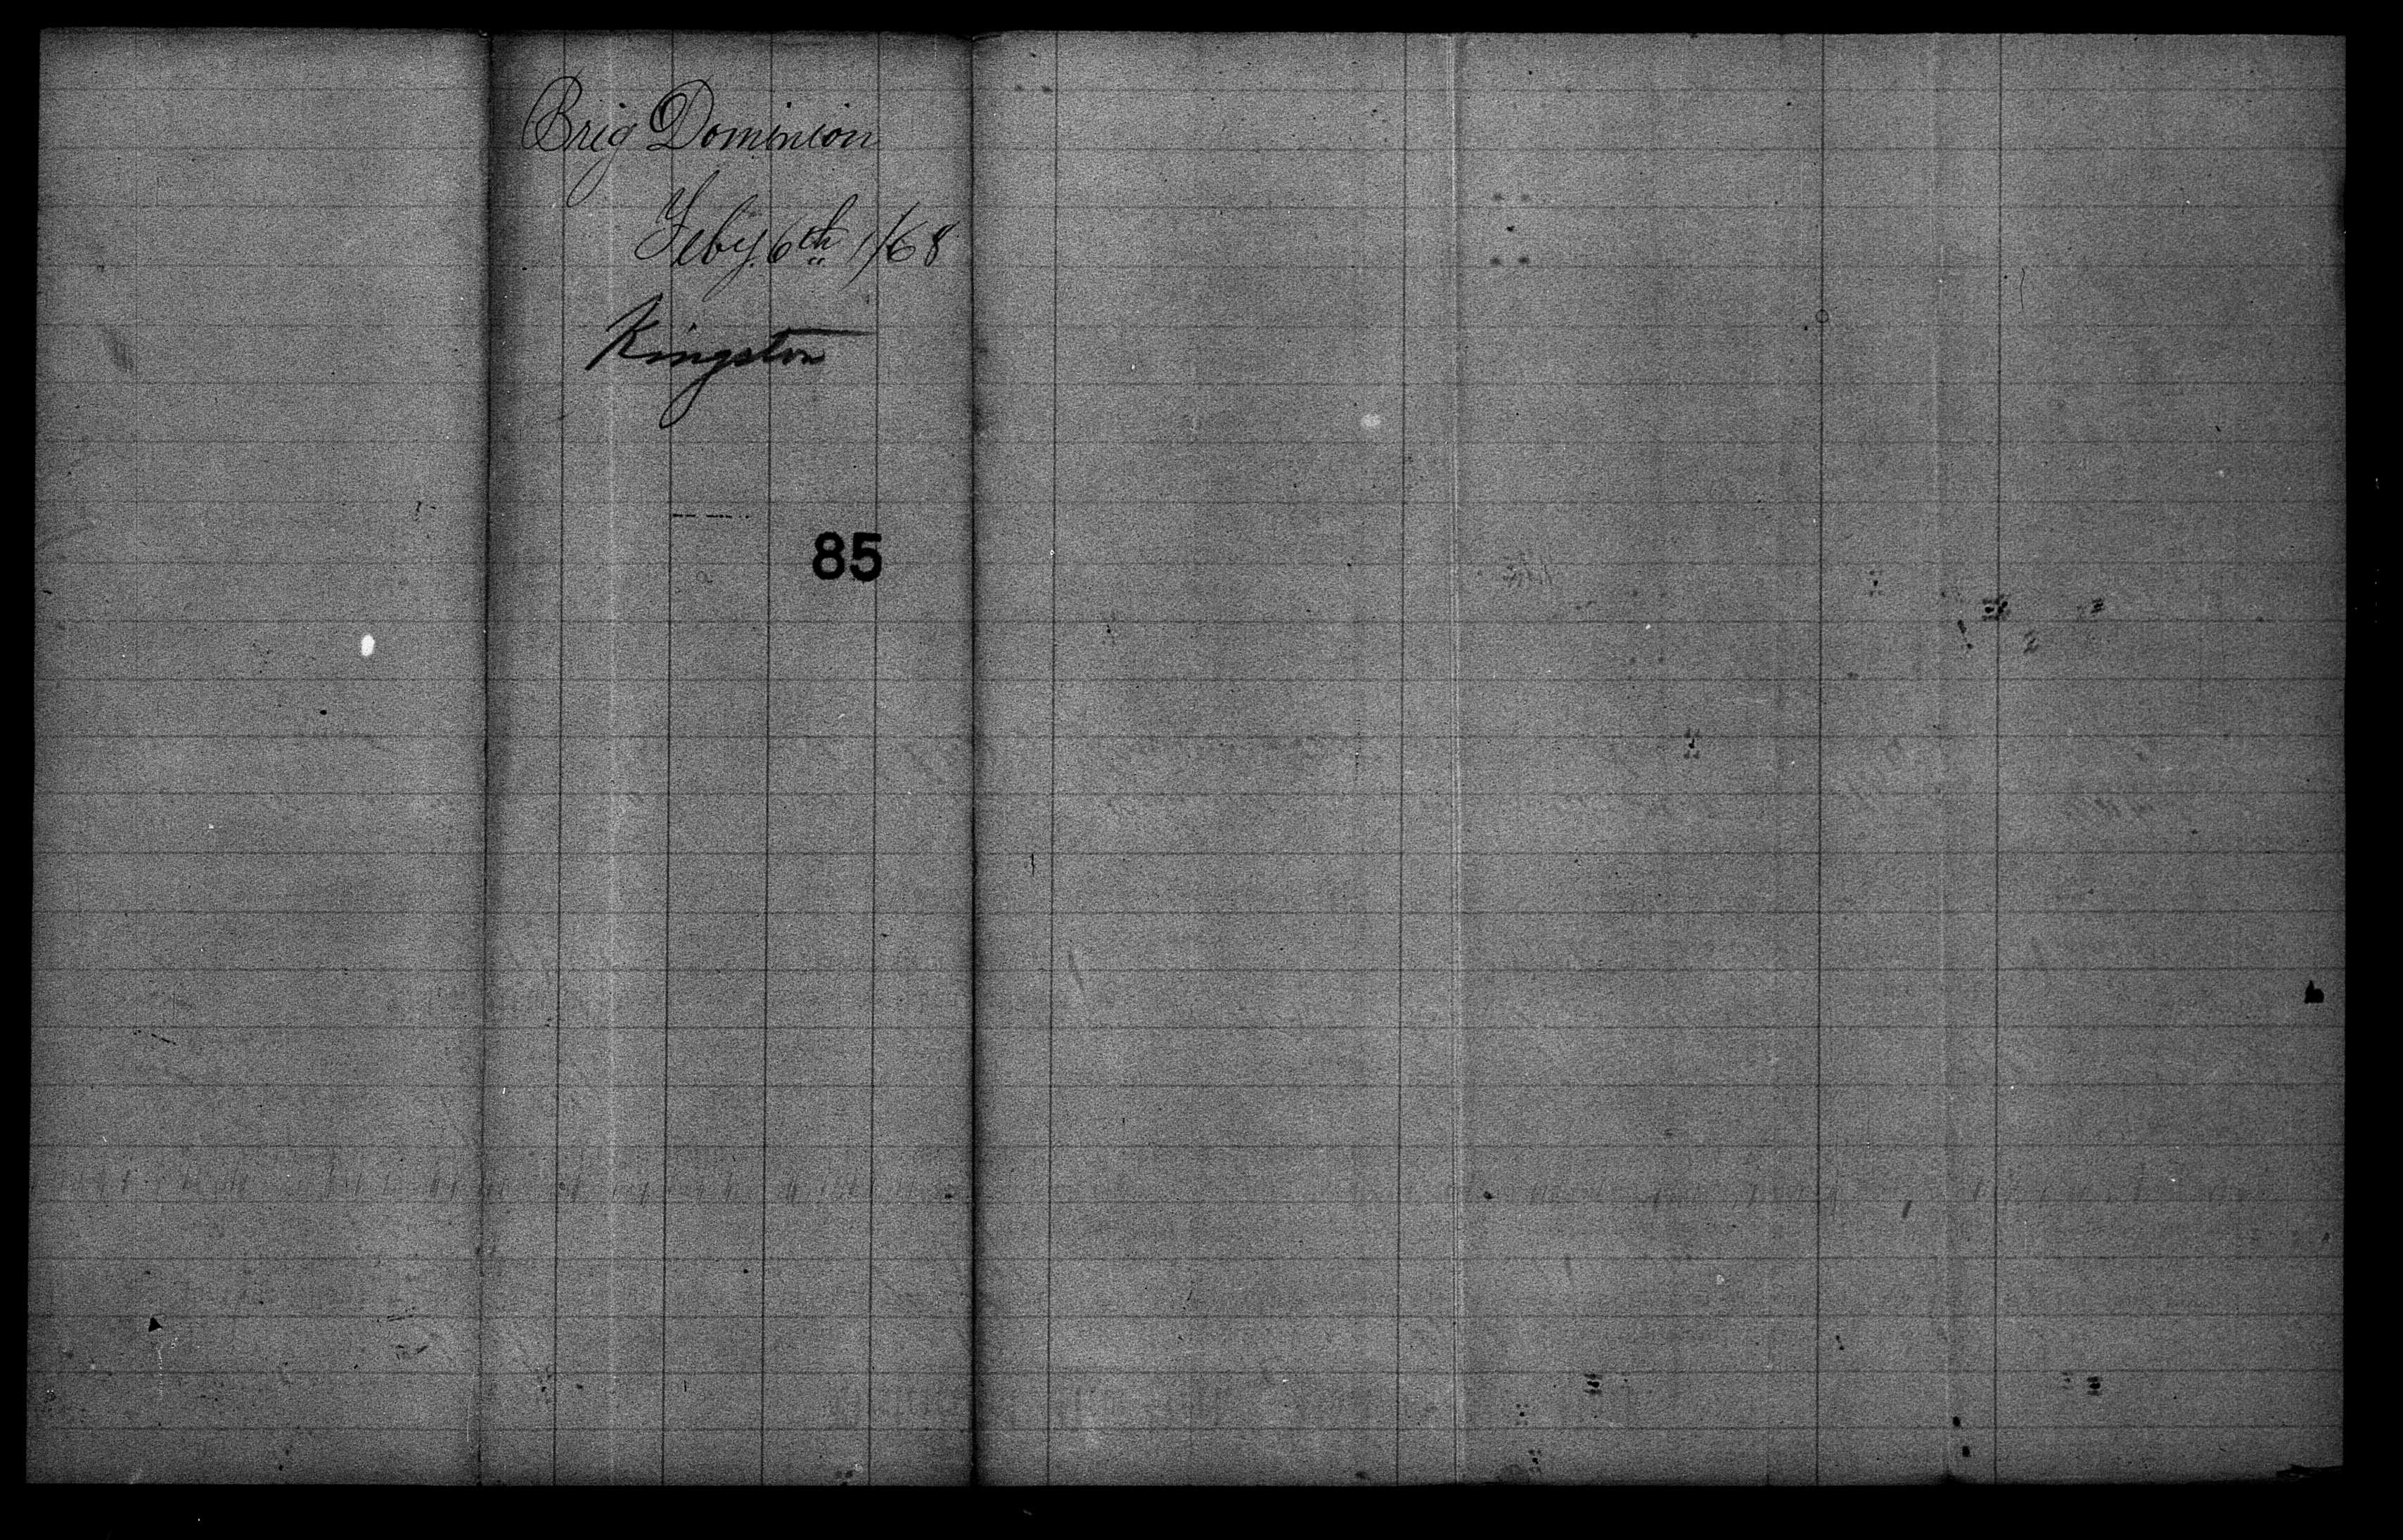 Brig Dominion
Feby. 6th 1/68
Kingston
85